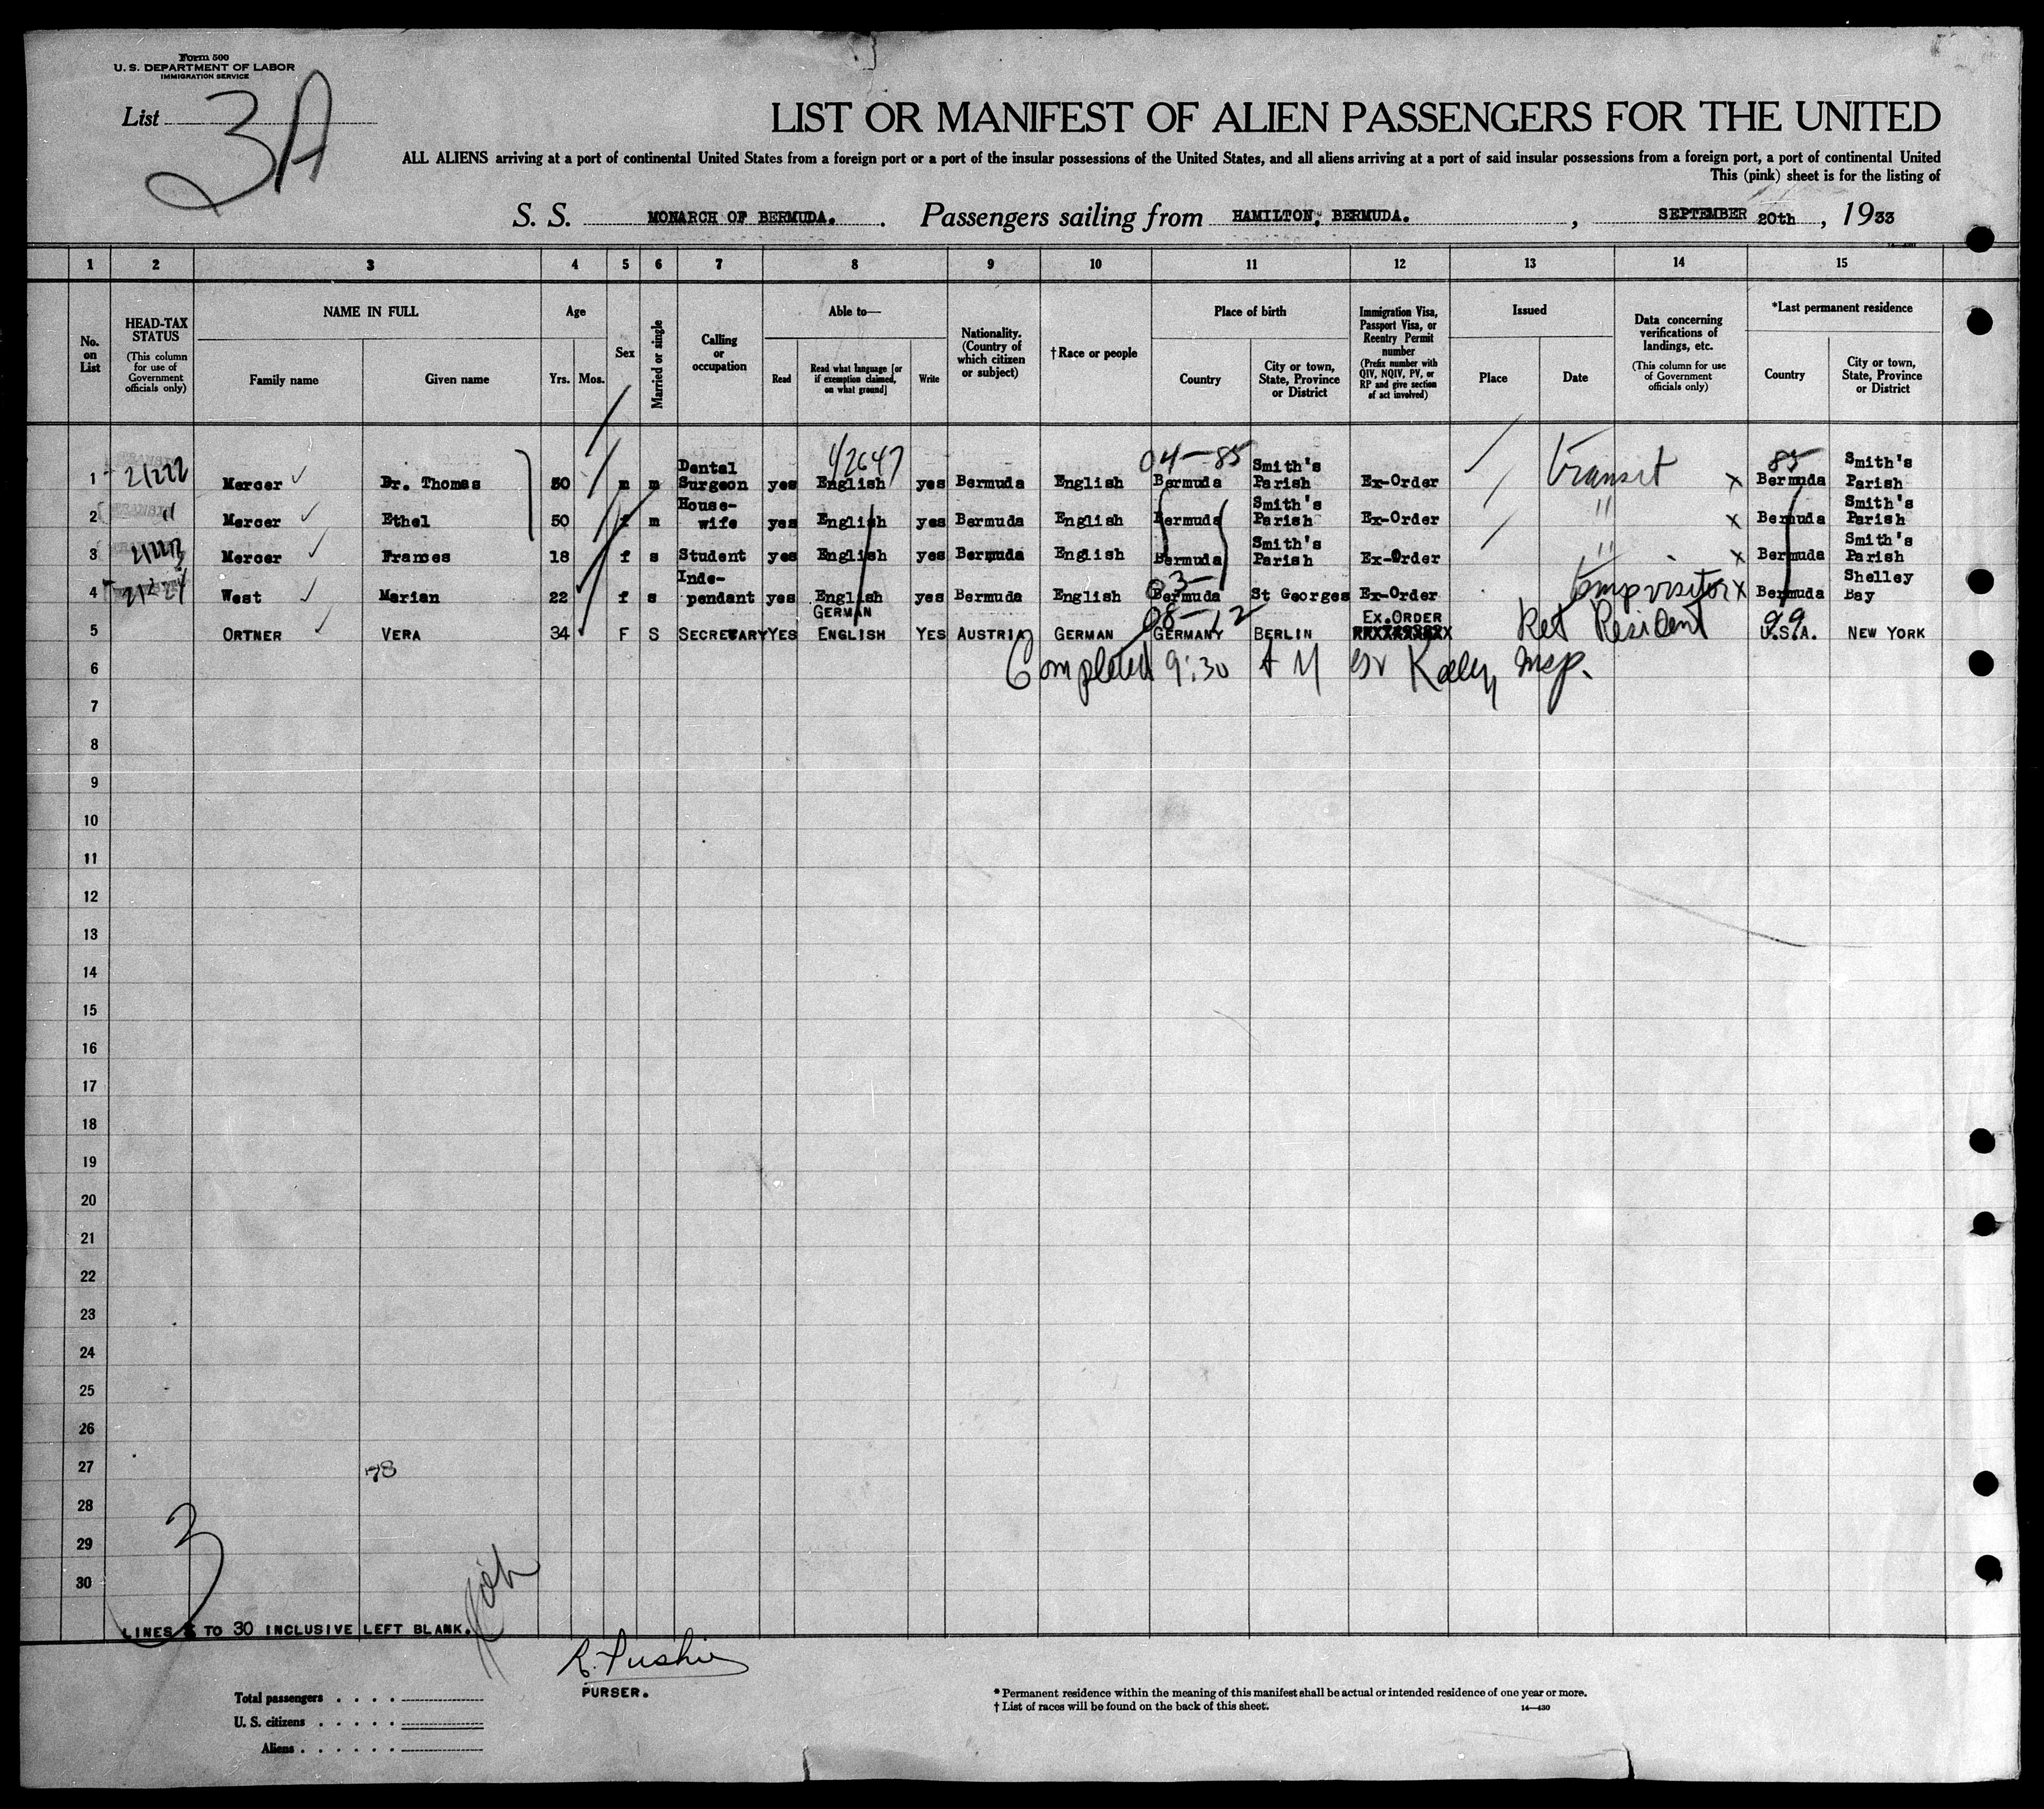 Form 500
U. S. DEPARTMENT OF LABOR
IMMIGRATION SERVICE
List 3A
LIST OR MANIFEST OF ALIEN PASSENGERS FOR THE UNITED
ALL ALIENS arriving at a port of continental United States from a foreign port or a port of the insular possessions of the United States, and all aliens arriving at a port of said insular possessions from a foreign port, a port of continental United
This (pink) sheet is for the listing of
S. S. MONARCH OF BERMUDA. Passengers sailing from HAMILTON, BERMUDA. , SEPTEMBER 20th , 1933
1 2 3 4 5 6 7 8 9 10 11 12 13 14 15
No. on List
HEAD-TAX STATUS (This column for use of Government officials only)
NAME IN FULL Family name Given name
Age Yrs. Mos.
Sex
Married or single
Calling or occupation
Able to— Read Read what language [or if exemption claimed, on what ground] Write
Nationality. (Country of which citizen or subject)
†Race or people
Place of birth Country City or town, State, Province or District
Immigration Visa, Passport Visa, or Reentry Permit number (Prefix number with QIV, NQIV, PV, or RP and give section of act involved)
Issued Place Date
Data concerning verifications of landings, etc. (This column for use of Government officials only)
*Last permanent residence Country City or town, State, Province or District
1 21222 Mercer Dr. Thomas 50 m m Dental Surgeon yes English yes Bermuda English 04-85 Bermuda Smith's Parish Ex-Order transit x 85 Bermuda Smith's Parish
2 " Mercer Ethel 50 f m House-wife yes English yes Bermuda English Bermuda Smith's Parish Ex-Order " x Bermuda Smith's Parish
3 21223 Mercer Frames 18 f s Student yes English yes Bermuda English Bermuda Smith's Parish Ex-Order " x Bermuda Smith's Parish
4 21224 West Marian 22 f s Inde-pendant yes English yes Bermuda English Bermuda St Georges Ex-Order temp visitor x Bermuda Shelley Bay
5 ORTNER VERA 34 F S SECRETARY YES GERMAN ENGLISH YES AUSTRIA GERMAN 08-12 GERMANY BERLIN EX.ORDER Ret Resident 99 U.S.A. NEW YORK
6 Completed 9:30 AM Insp.
7
8
9
10
11
12
13
14
15
16
17
18
19
20
21
22
23
24
25
26
27
28
29
30
3
LINES TO 30 INCLUSIVE LEFT BLANK.
PURSER.
Total passengers . . . .
U. S. citizens . . . . .
Aliens . . . . . .
* Permanent residence within the meaning of this manifest shall be actual or intended residence of one year or more.
† List of races will be found on the back of this sheet.
14—430